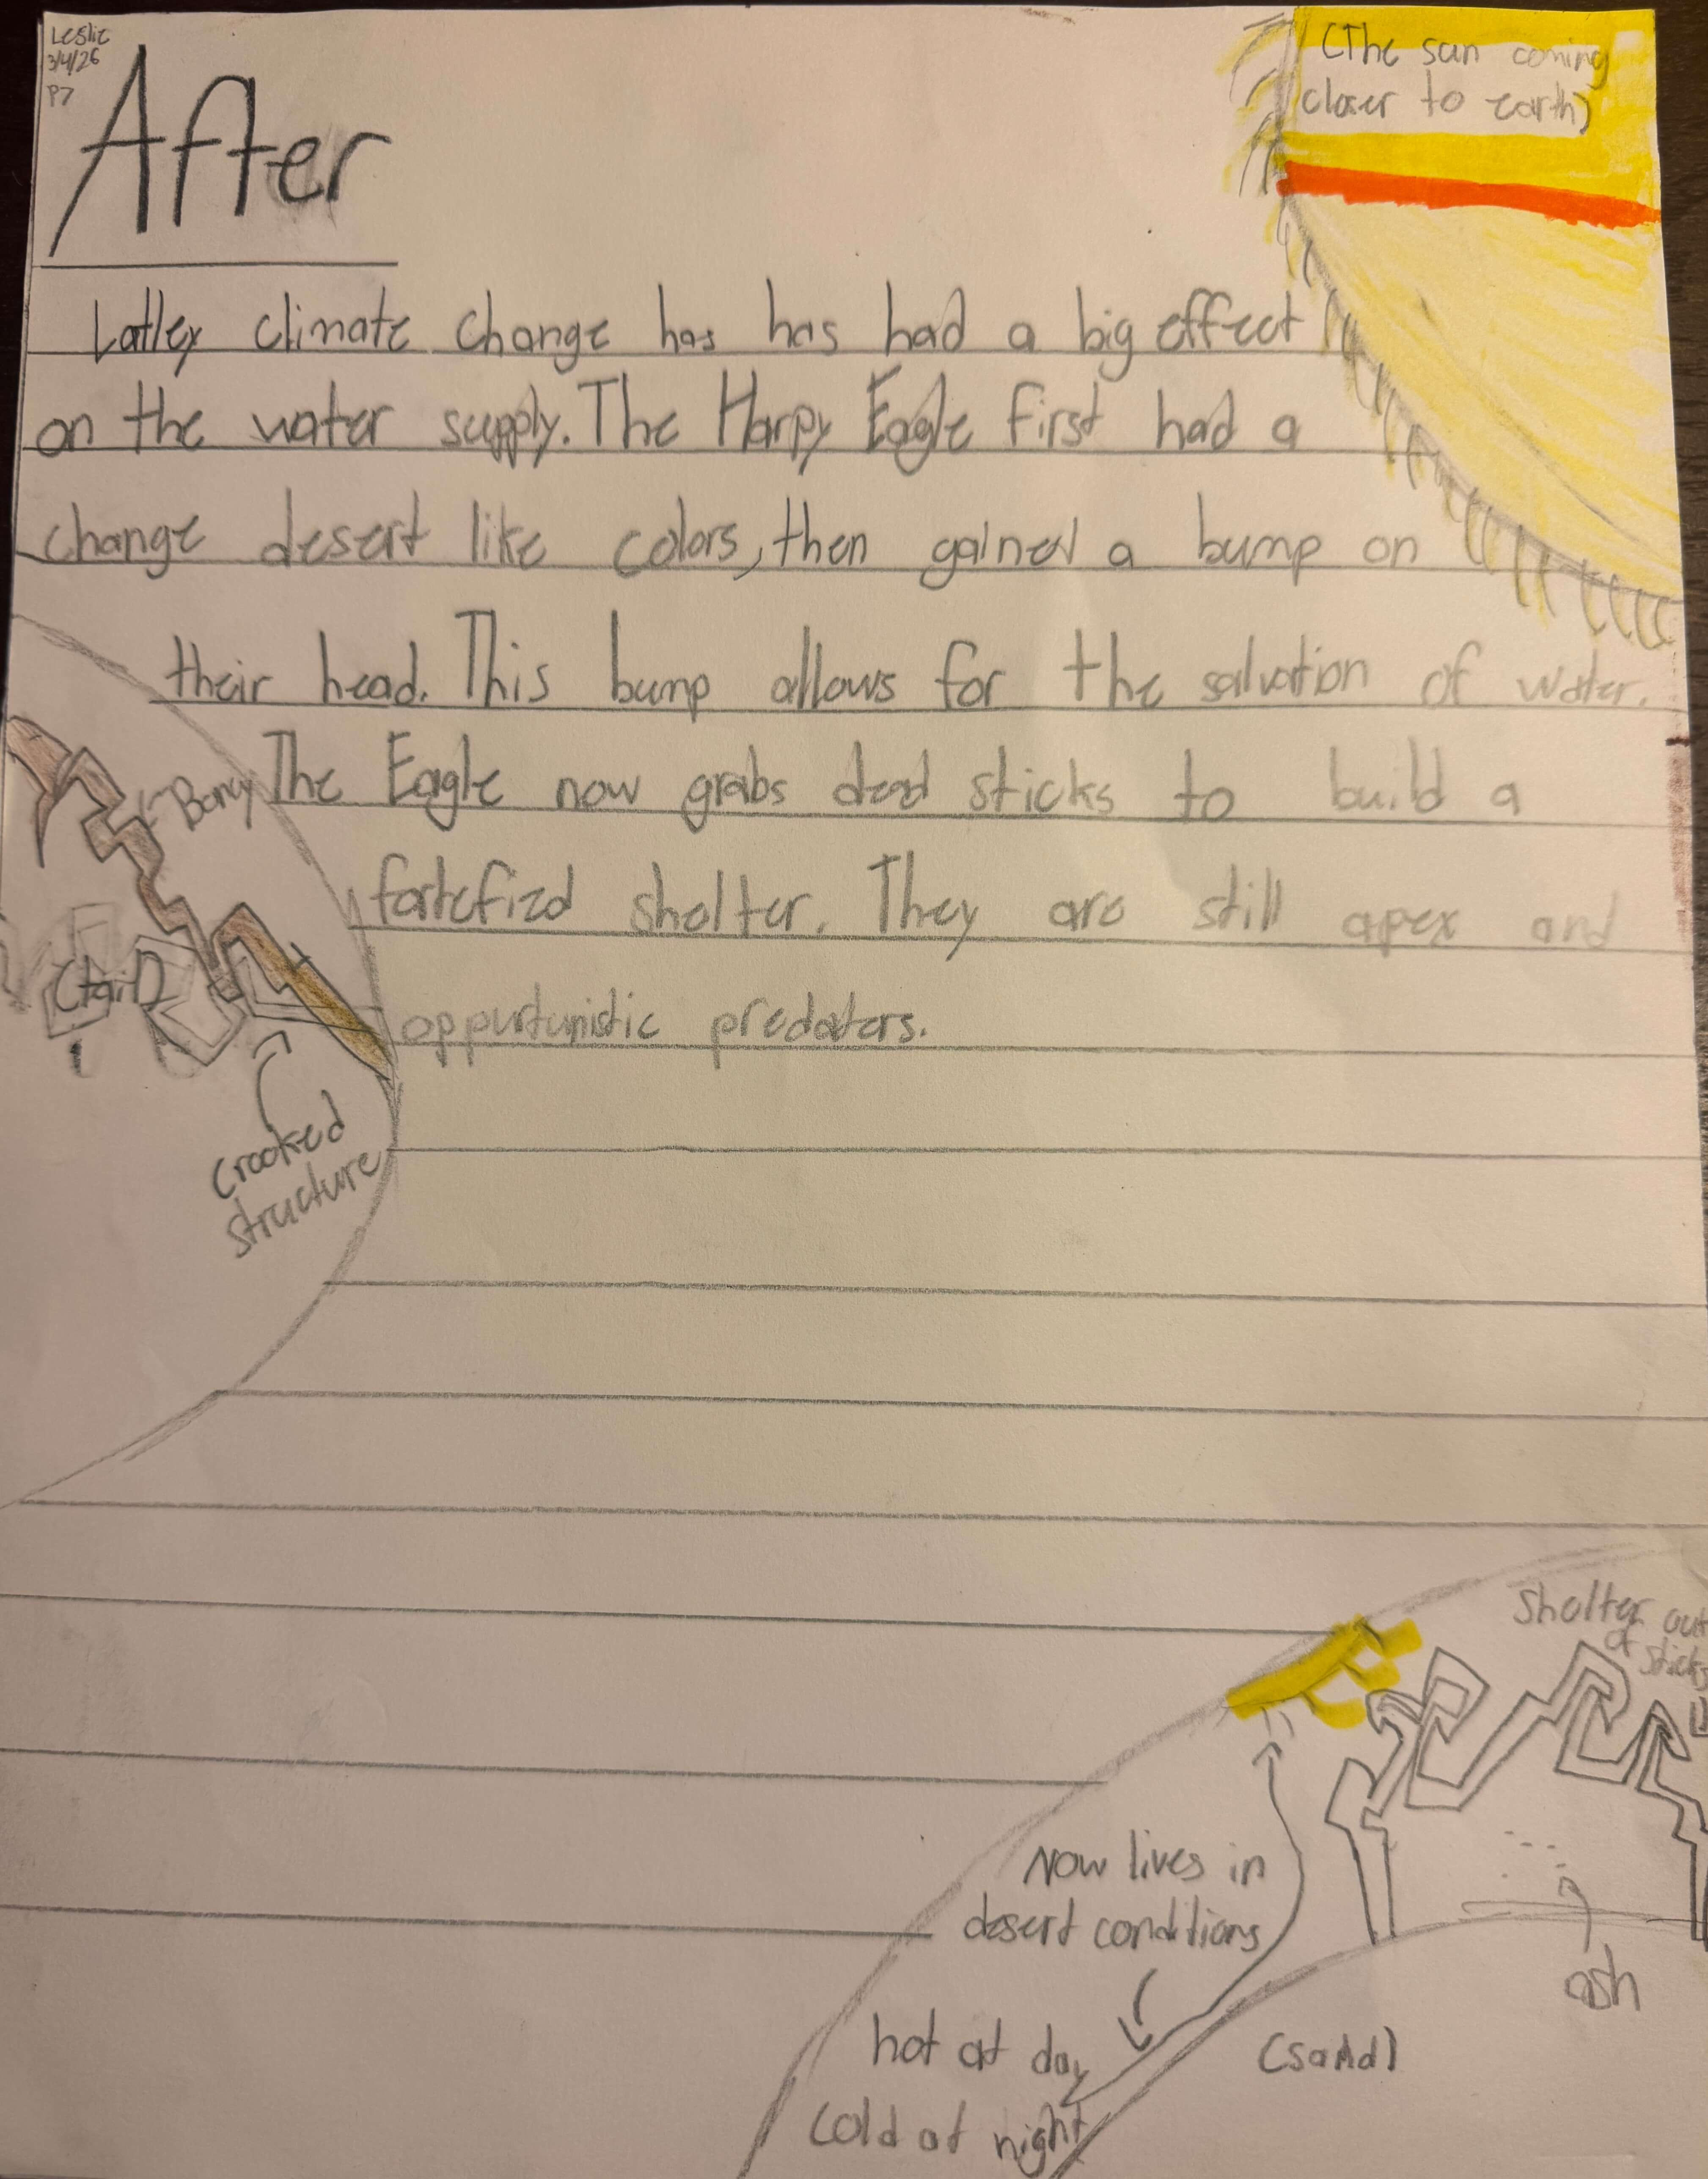 Leslie
3/4/26
P7
(The sun coming
closer to earth)
After
Latley climate change has has had a big effect
on the water supply. The Harpy Eagle first had a
change desert like colors, then gained a bump on
their head. This bump allows for the salvation of water.
The Eagle now grabs dead sticks to build a
fortefied shelter. They are still apex and
oppurtunistic predators.
Boney
(tail)
Crooked
structure
Shelter out
of sticks
Now lives in
desert conditions
ash
hot at day
(sand)
Cold at night